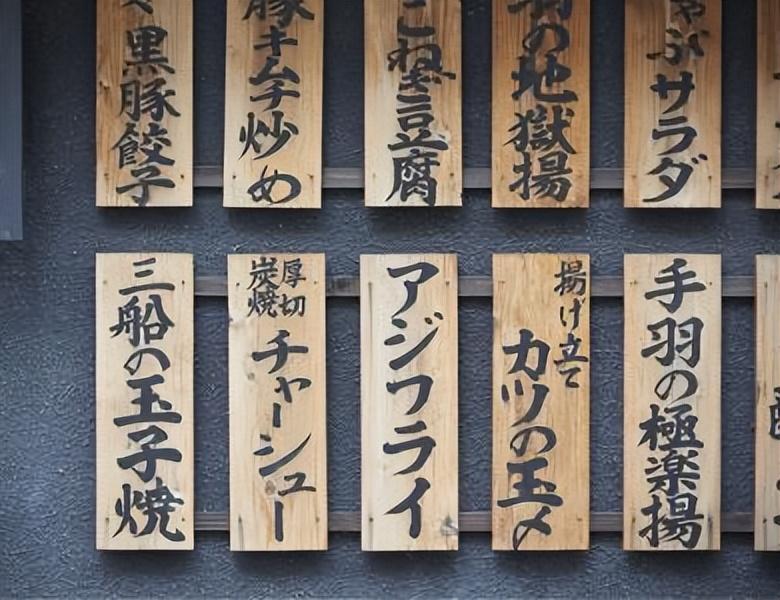 黒豚餃子
豚キムチ炒め
こねぎ豆腐
羽の地獄揚
しゃぶサラダ
三船の玉子焼
厚切
炭焼
チャーシュー
アジフライ
揚げ立て
カツの玉〆
手羽の極楽揚